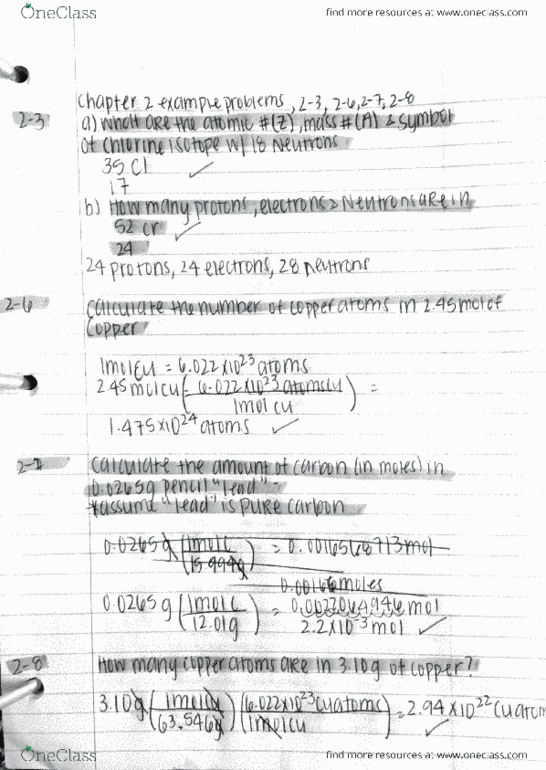 OneClass
find more resources at www.oneclass.com
Chapter 2 example problems, 2-3, 2-6, 2-7, 2-8
2-3 a) What are the atomic #(Z), mass #(A) & symbol
of chlorine isotope w/ 18 Neutrons
35 Cl
17
b) How many protons, electrons & Neutrons are in
52 cr
24
24 protons, 24 electrons, 28 neutrons
2-6 Calculate the number of copper atoms in 2.45 mol of
Copper
1 mol Cu = 6.022 x 10^23 atoms
2.45 mol cu (6.022 x 10^23 atoms cu / 1 mol cu) =
1.475 x 10^24 atoms
2-7 Calculate the amount of carbon (in moles) in
0.0265g pencil "lead"
*assume "lead" is pure carbon
0.0265 g (1 mol c / 15.999g) = 0.001656 8713 mol
0.00166 moles
0.0265 g (1 mol c / 12.01g) = mol
2.2 x 10^-3 mol
2-8 How many copper atoms are in 3.10 g of copper?
3.10g (1 mol cu / 63.546g) (6.022 x 10^23 cu atoms / 1 mol cu) = 2.94 x 10^22 Cu atom
OneClass
find more resources at www.oneclass.com